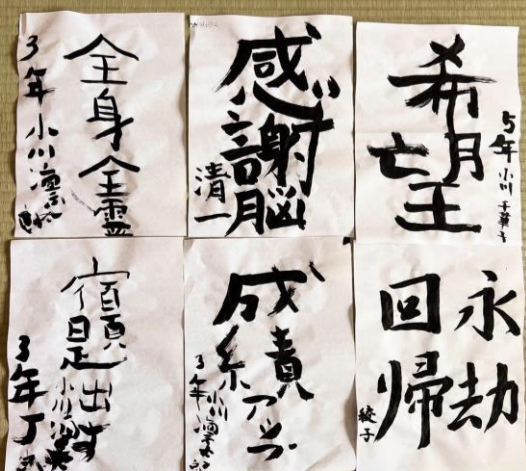 全身全霊
3年 小川凛
感謝脳
清一
希望
5年 小川
宿題出す
3年
成績アップ
3年 小川凛太郎
永劫
回帰
綾子